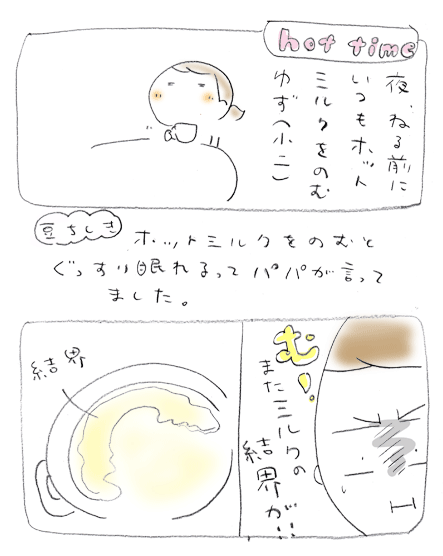 hot time
夜、ねる前に
いつもホット
ミルクをのむ
ゆず(小二)
豆ちしき
ホットミルクをのむと
ぐっすり眠れるってパパが言って
ました。
む!
またミルクの
結界が!!
結界